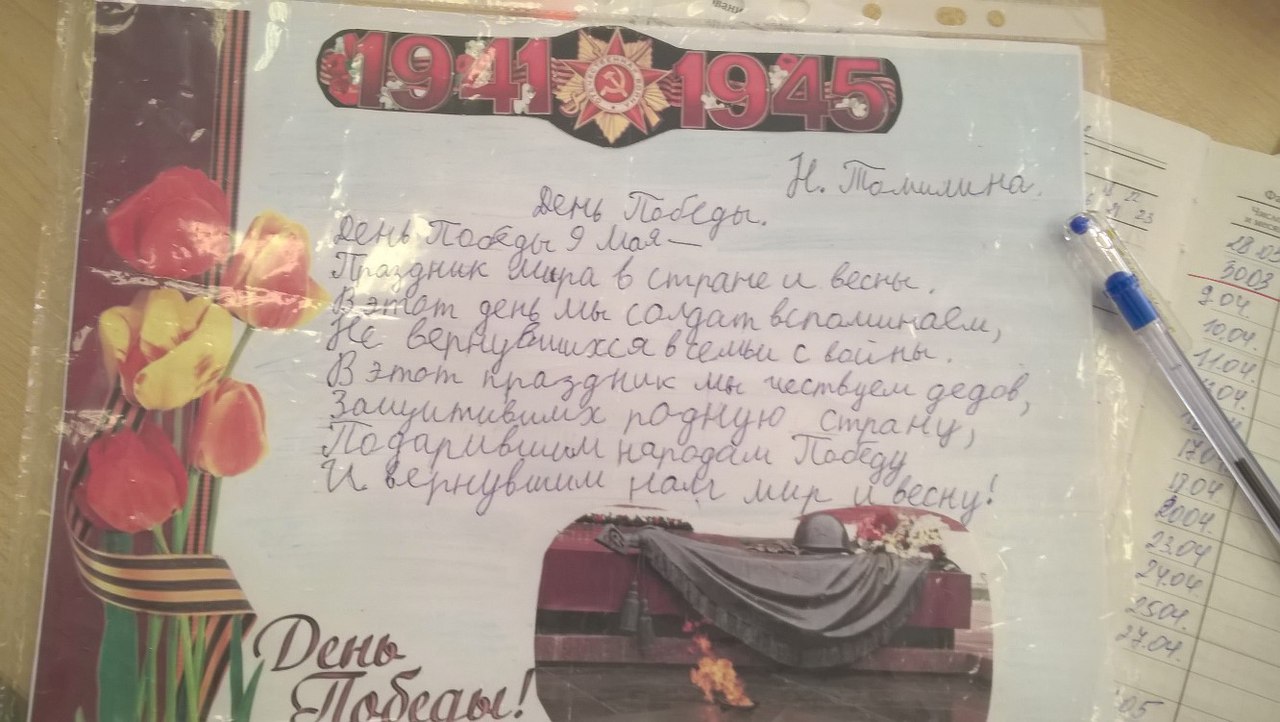 1941 1945
Н. Томилина.
День Победы.
День Победы 9 мая—
Праздник мира в стране и весны.
В этот день мы солдат вспоминаем,
Не вернувшихся в семьи с войны.
В этот праздник мы чествуем дедов,
Защитивимх родную страну,
Подарившим народам Победу
И вернувшим нам мир и весну!
День
Победы!
22
21 23
28.03
30.03
9.04.
10.04.
11.04.
17.04
18.04
20.04.
23.04
24.04
25.04.
27.04.